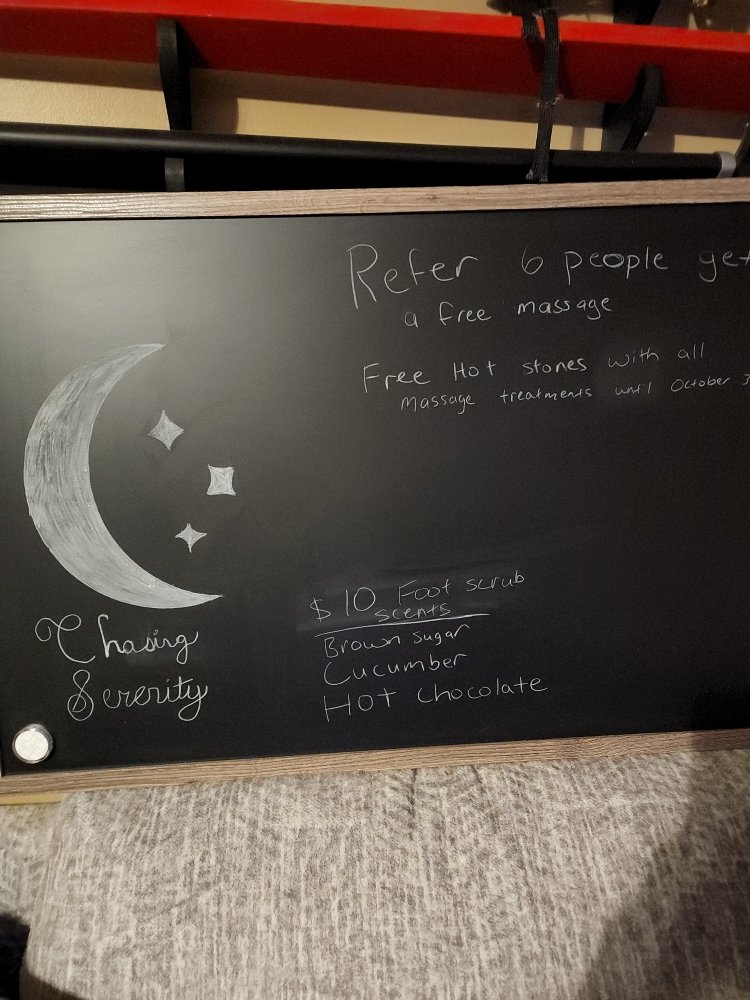 Refer 6 people get
a free massage
Free Hot stones with all
massage treatments until October 3
$10 Foot scrub
scents
Brown sugar
Cucumber
Hot chocolate
Chasing
Serenity